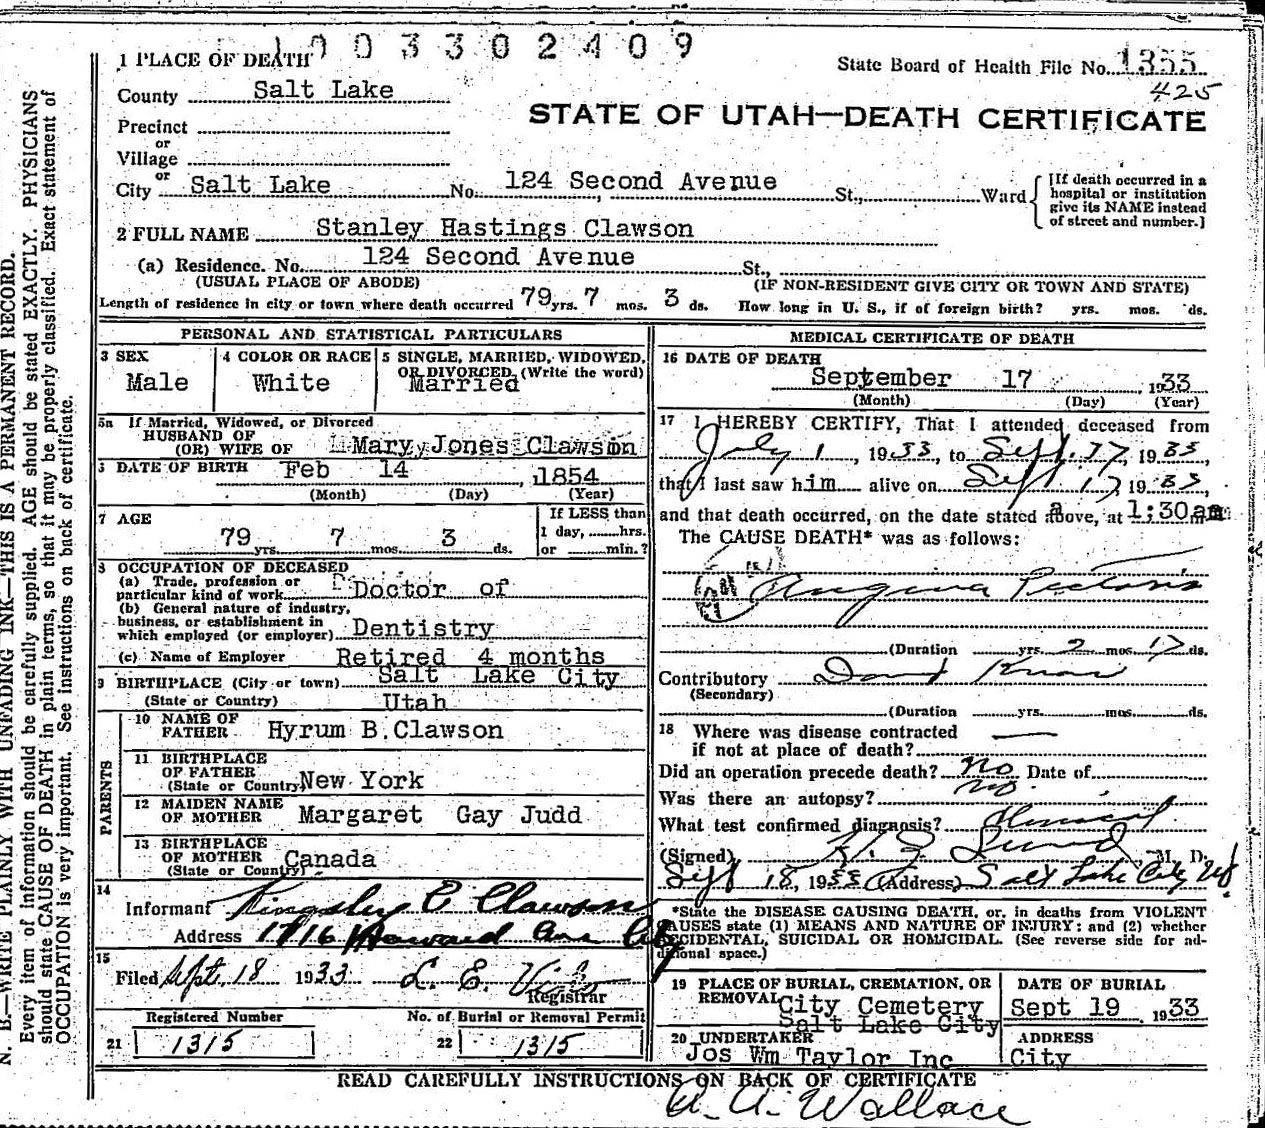 1003302409
1 PLACE OF DEATH
State Board of Health File No. 1355
425
County Salt Lake
STATE OF UTAH—DEATH CERTIFICATE
Precinct
or
Village
or
City Salt Lake No. 124 Second Avenue St., Ward
[If death occurred in a
hospital or institution
give its NAME instead
of street and number.]
2 FULL NAME Stanley Hastings Clawson
(a) Residence. No. 124 Second Avenue St.,
(USUAL PLACE OF ABODE) (IF NON-RESIDENT GIVE CITY OR TOWN AND STATE)
Length of residence in city or town where death occurred 79 yrs. 7 mos. 3 ds. How long in U. S., if of foreign birth? yrs. mos. ds.
PERSONAL AND STATISTICAL PARTICULARS
3 SEX
Male
4 COLOR OR RACE
White
5 SINGLE, MARRIED, WIDOWED,
OR DIVORCED (Write the word)
Married
5a If Married, Widowed, or Divorced
HUSBAND OF
(OR) WIFE OF Mary Jones Clawson
6 DATE OF BIRTH Feb 14, 1854
(Month) (Day) (Year)
7 AGE
79 yrs. 7 mos. 3 ds.
If LESS than
1 day, hrs.
or min.?
8 OCCUPATION OF DECEASED
(a) Trade, profession or
particular kind of work Doctor of
(b) General nature of industry,
business, or establishment in
which employed (or employer) Dentistry
(c) Name of Employer Retired 4 months
9 BIRTHPLACE (City or town) Salt Lake City
(State or Country) Utah
PARENTS
10 NAME OF
FATHER Hyrum B. Clawson
11 BIRTHPLACE
OF FATHER
(State or Country) New York
12 MAIDEN NAME
OF MOTHER Margaret Gay Judd
13 BIRTHPLACE
OF MOTHER
(State or Country) Canada
14
Informant Kingsley C Clawson
Address 1716 Howard Ave City
15
Filed Sept. 18 1933 L. E.
Registrar
Registered Number
21 1315
No. of Burial or Removal Permit
22 1315
MEDICAL CERTIFICATE OF DEATH
16 DATE OF DEATH
September 17, 1933
(Month) (Day) (Year)
17 I HEREBY CERTIFY, That I attended deceased from
July 1, 1933, to Sept. 17, 1933,
that I last saw him alive on Sept 17, 1933,
and that death occurred, on the date stated above, at 1:30 am
The CAUSE DEATH* was as follows:
Angina Pectoris
(Duration yrs. 2 mos. 17 ds.
Contributory Dont Know
(Secondary)
(Duration yrs. mos. ds.
18 Where was disease contracted
if not at place of death?
Did an operation precede death? no Date of
Was there an autopsy? no.
What test confirmed diagnosis? Clinical
(Signed) , M. D.
Sept 18, 1933 (Address) Salt Lake City Ut
*State the DISEASE CAUSING DEATH, or, in deaths from VIOLENT
CAUSES state (1) MEANS AND NATURE OF INJURY; and (2) whether
ACCIDENTAL, SUICIDAL OR HOMICIDAL. (See reverse side for ad-
ditional space.)
19 PLACE OF BURIAL, CREMATION, OR
REMOVAL City Cemetery
Salt Lake City
DATE OF BURIAL
Sept 19, 1933
20 UNDERTAKER
Jos Wm Taylor Inc
ADDRESS
City
READ CAREFULLY INSTRUCTIONS ON BACK OF CERTIFICATE
A. A. Wallace
N. B.—WRITE PLAINLY WITH UNFADING INK—THIS IS A PERMANENT RECORD.
Every item of information should be carefully supplied. AGE should be stated EXACTLY. PHYSICIANS
should state CAUSE OF DEATH in plain terms, so that it may be properly classified. Exact statement of
OCCUPATION is very important. See instructions on back of certificate.